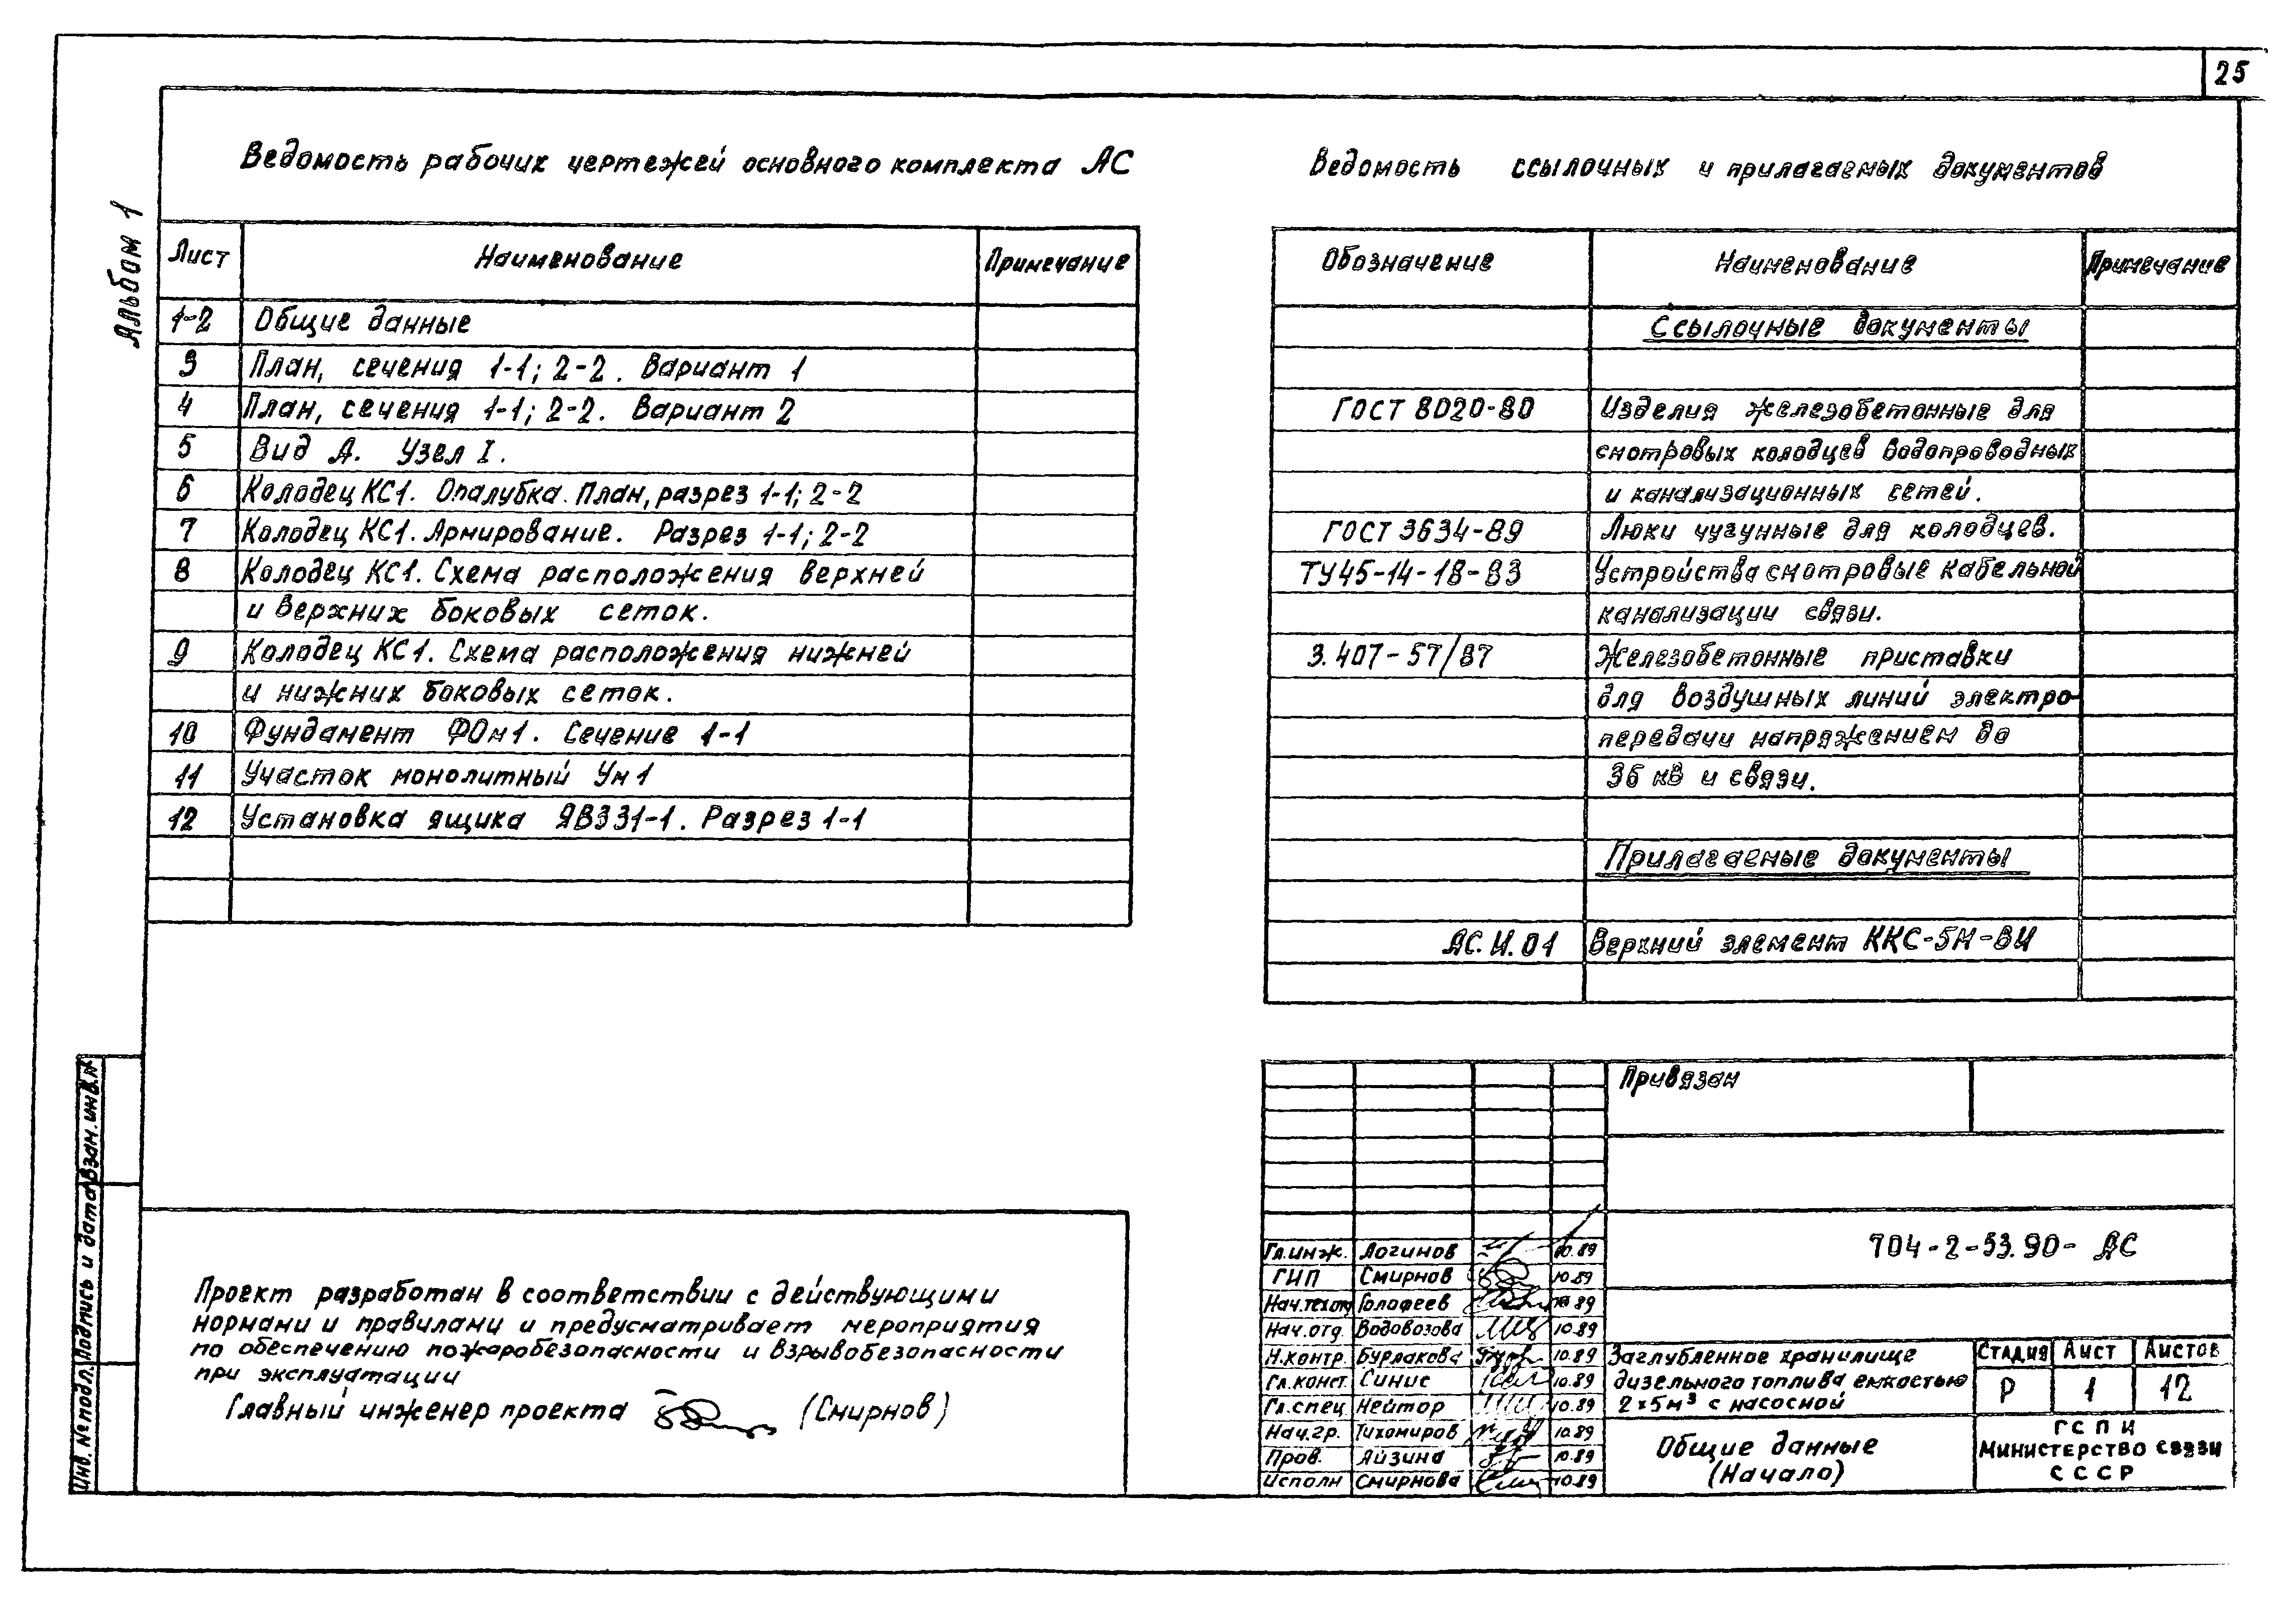 25
Альбом 1
Ведомость рабочих чертежей основного комплекта АС
Лист Наименование Примечание
1-2 Общие данные
3 План, сечения 1-1; 2-2. Вариант 1
4 План, сечения 1-1; 2-2. Вариант 2
5 Вид А. Узел I.
6 Колодец КС1. Опалубка. План, разрез 1-1; 2-2
7 Колодец КС1. Армирование. Разрез 1-1; 2-2
8 Колодец КС1. Схема расположения верхней
и верхних боковых сеток.
9 Колодец КС1. Схема расположения нижней
и нижних боковых сеток.
10 Фундамент ФОм1. Сечение 1-1
11 Участок монолитный Ум1
12 Установка ящика ЯВ331-1. Разрез 1-1
Ведомость ссылочных и прилагаемых документов
Обозначение Наименование Примечание
Ссылочные документы
ГОСТ 8020-80 Изделия железобетонные для
смотровых колодцев водопроводных
и канализационных сетей.
ГОСТ 3634-89 Люки чугунные для колодцев.
ТУ45-14-18-83 Устройства смотровые кабельной
канализации связи.
3.407-57/87 Железобетонные приставки
для воздушных линий электро-
передачи напряжением до
35 кв и связи.
Прилагаемые документы
АС.И.01 Верхний элемент ККС-5М-ВИ
Проект разработан в соответствии с действующими
нормами и правилами и предусматривает мероприятия
по обеспечению пожаробезопасности и взрывобезопасности
при эксплуатации
Главный инженер проекта (Смирнов)
Взам. инв.№
Подпись и дата
Инв. № подл.
Привязан
704-2-53.90- АС
Гл.инж. Логинов 10.89
ГИП Смирнов 10.89
Нач.техот Голофеев 10.89
Нач.отд. Водовозова 10.89
Н.контр. Бурлакова 10.89
Гл.конст. Синис 10.89
Гл.спец Нейтор 10.89
Нач.гр. Тихомиров 10.89
Пров. Айзина 10.89
Исполн Смирнова 10.89
Заглубленное хранилище
дизельного топлива емкостью
2×5м³ с насосной
Стадия Лист Листов
Р 1 12
Общие данные
(Начало)
ГСПИ
Министерство связи
СССР